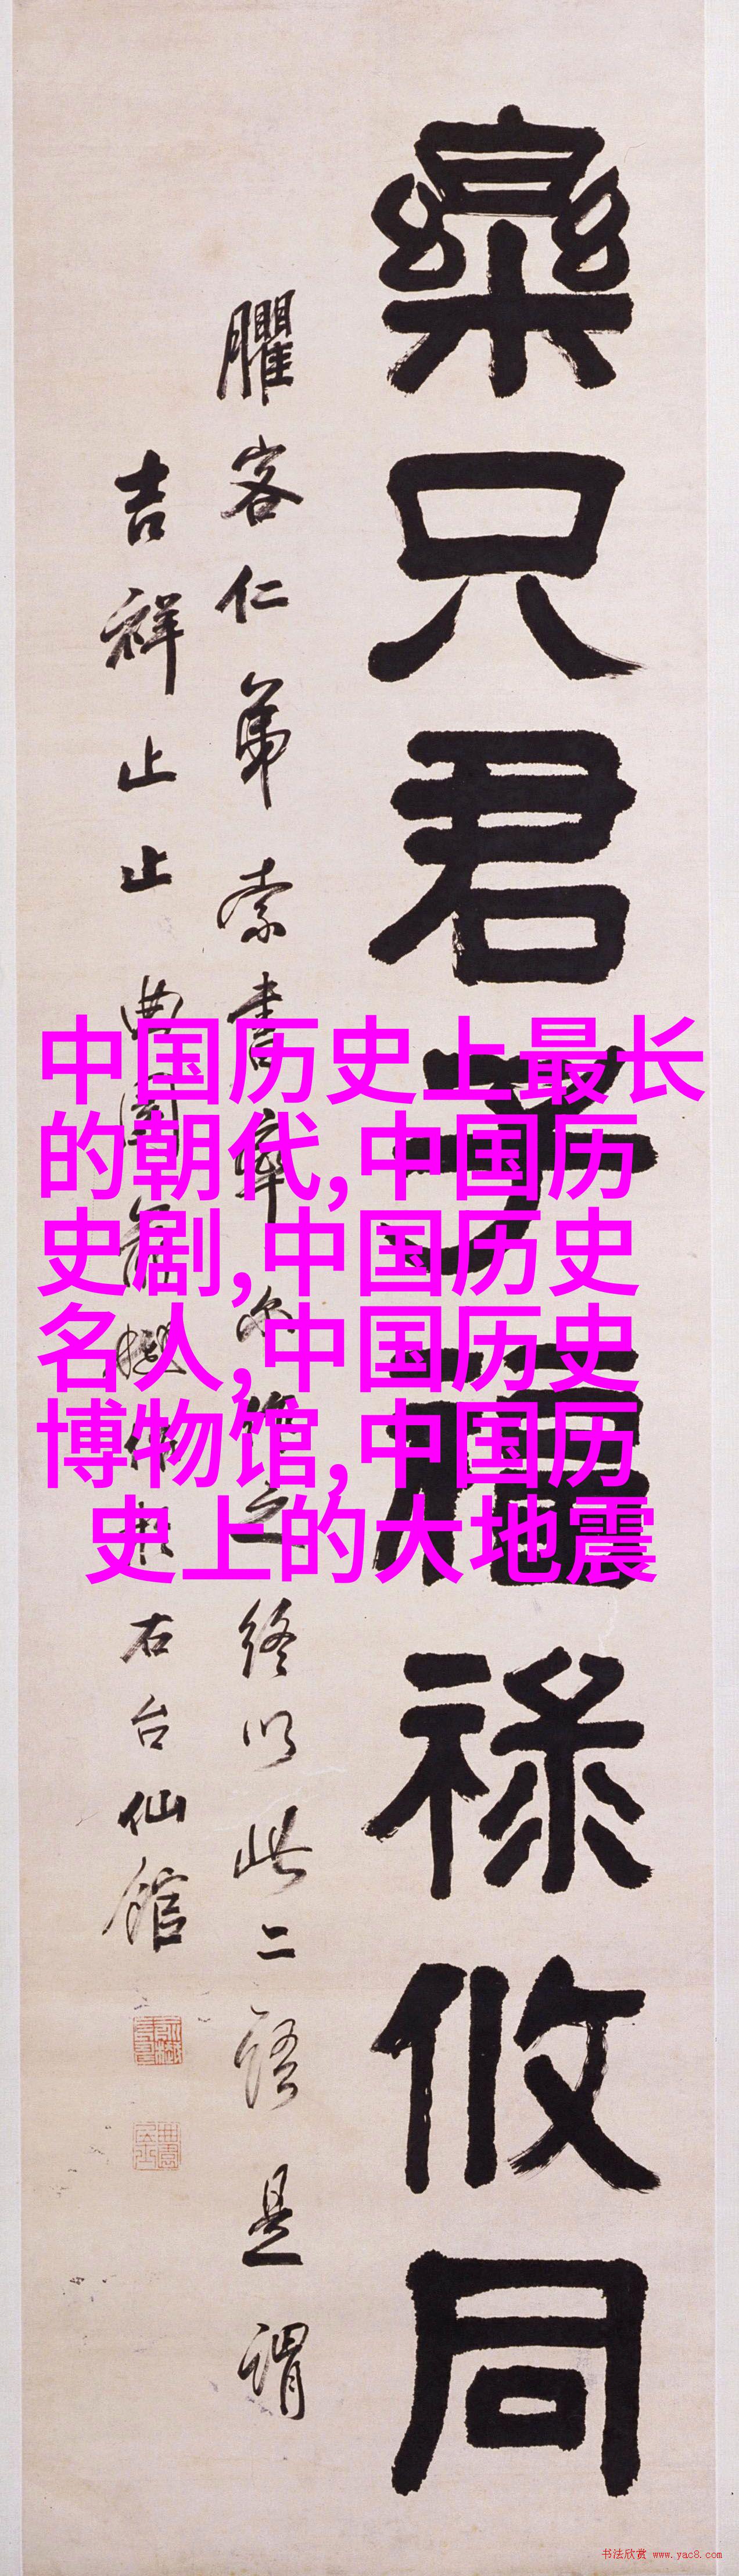 樂只君子福祿攸同
臞客仁弟索書率爾作之終以此二語是謂
吉祥止止曲園
右台仙館
中国历史上最长
的朝代,中国历
史剧,中国历史
名人,中国历史
博物馆,中国历
史上的大地震
书法欣赏 www.yac8.com